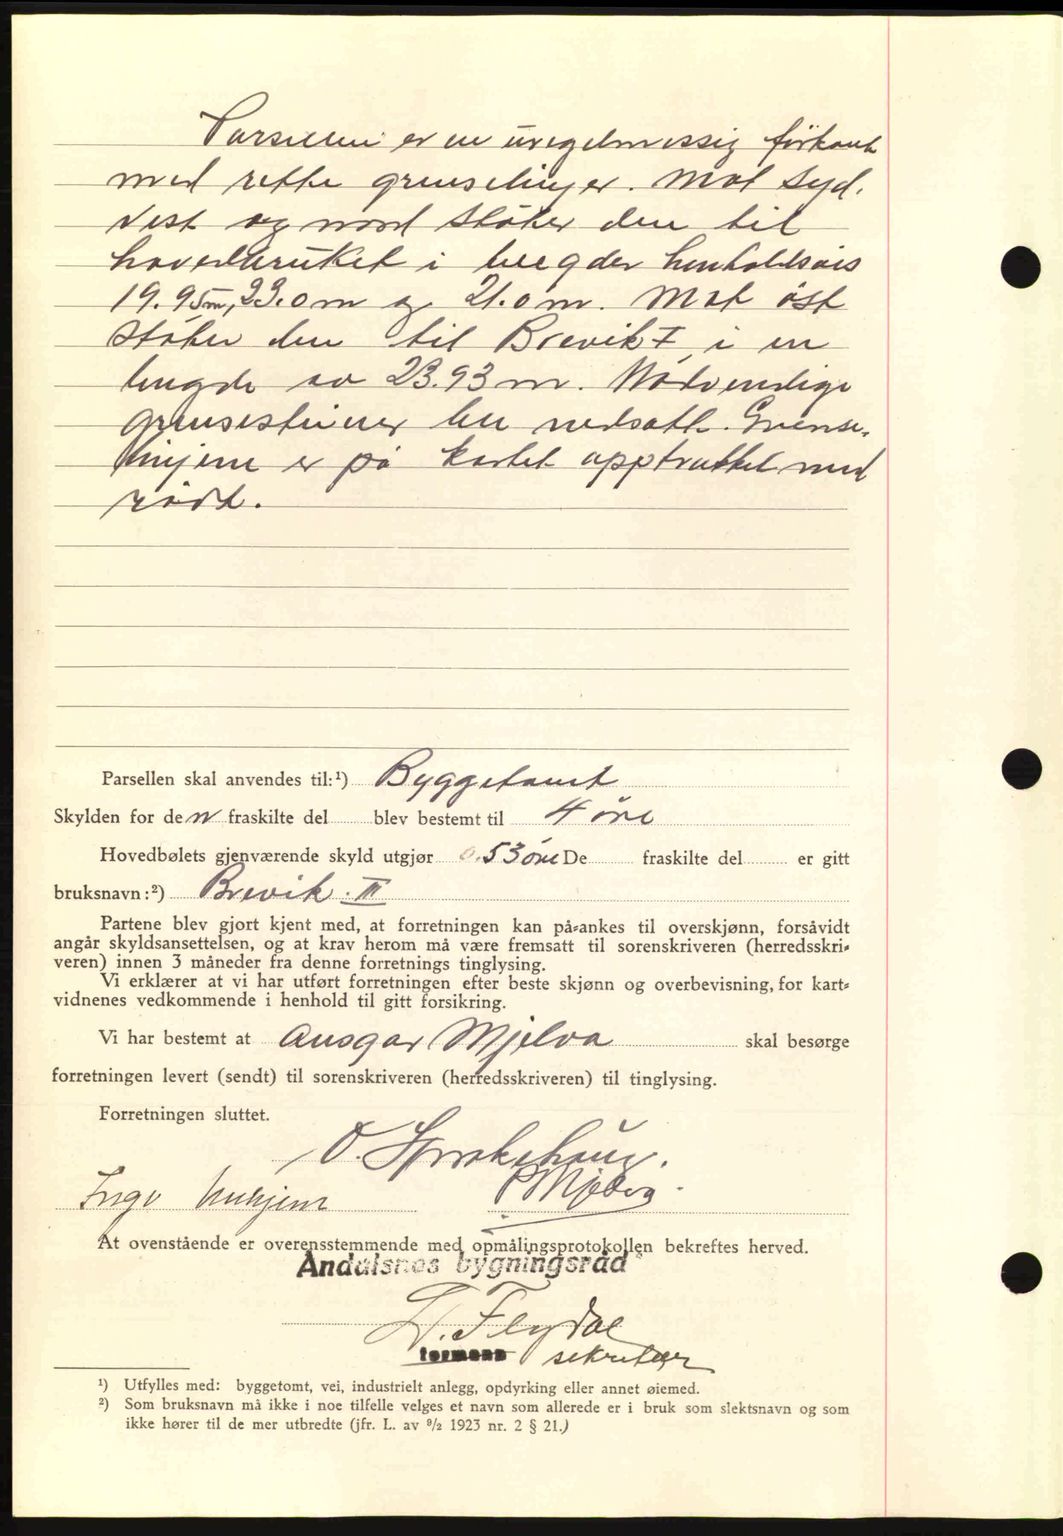 Parsellen er en uregelmessig firkant
med rette grenselinjer. Mot syd,
vest og nord støter den til
hovedbruket i lengder henholdsvis
19.95m, 23.0m og 21.0m. Mot øst
støter den til Brevik I i en
lengde av 23.93 m. Nødvendige
grensesteiner ble nedsatt. Grense-
linjene er på kartet opptrukket med
rødt.
Parsellen skal anvendes til:¹) Byggetomt
Skylden for den fraskilte del blev bestemt til 4 øre
Hovedbølets gjenværende skyld utgjør 0.53 øre De fraskilte del er gitt
bruksnavn:²) Brevik III
Partene blev gjort kjent med, at forretningen kan på-ankes til overskjønn, forsåvidt
angår skyldsansettelsen, og at krav herom må være fremsatt til sorenskriveren (herredsskri-
veren) innen 3 måneder fra denne forretnings tinglysing.
Vi erklærer at vi har utført forretningen efter beste skjønn og overbevisning, for kart-
vidnenes vedkommende i henhold til gitt forsikring.
Vi har bestemt at Ansgar Mjelva skal besørge
forretningen levert (sendt) til sorenskriveren (herredsskriveren) til tinglysing.
Forretningen sluttet.
O.
Inge P. Mjelva
At ovenstående er overensstemmende med opmålingsprotokollen bekreftes herved.
Åndalsnes bygningsråd
Flydal
formann sekretær
¹) Utfylles med: byggetomt, vei, industrielt anlegg, opdyrking eller annet øiemed.
²) Som bruksnavn må ikke i noe tilfelle velges et navn som allerede er i bruk som slektsnavn og som
ikke hører til de mer utbredte (jfr. L. av 9/2 1923 nr. 2 § 21.)